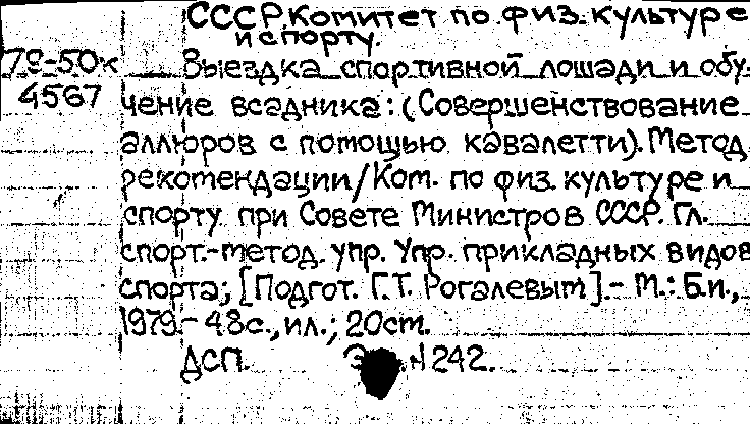 СССР. Комитет по физ. культуре
и спорту.
79-50к
4567
Выездка спортивной лошади и обу-
чение всадника: (Совершенствование
аллюров с помощью кавалетти). Метод.
рекомендации/Ком. по физ. культуре и
спорту при Совете Министров СССР. Гл.
спорт.-метод. упр. Упр. прикладных видов
спорта; [Подгот. Г.Т. Рогалевым].- М.: Б.и.,
1979.- 48с., ил.; 20см.
ДСП. 242.